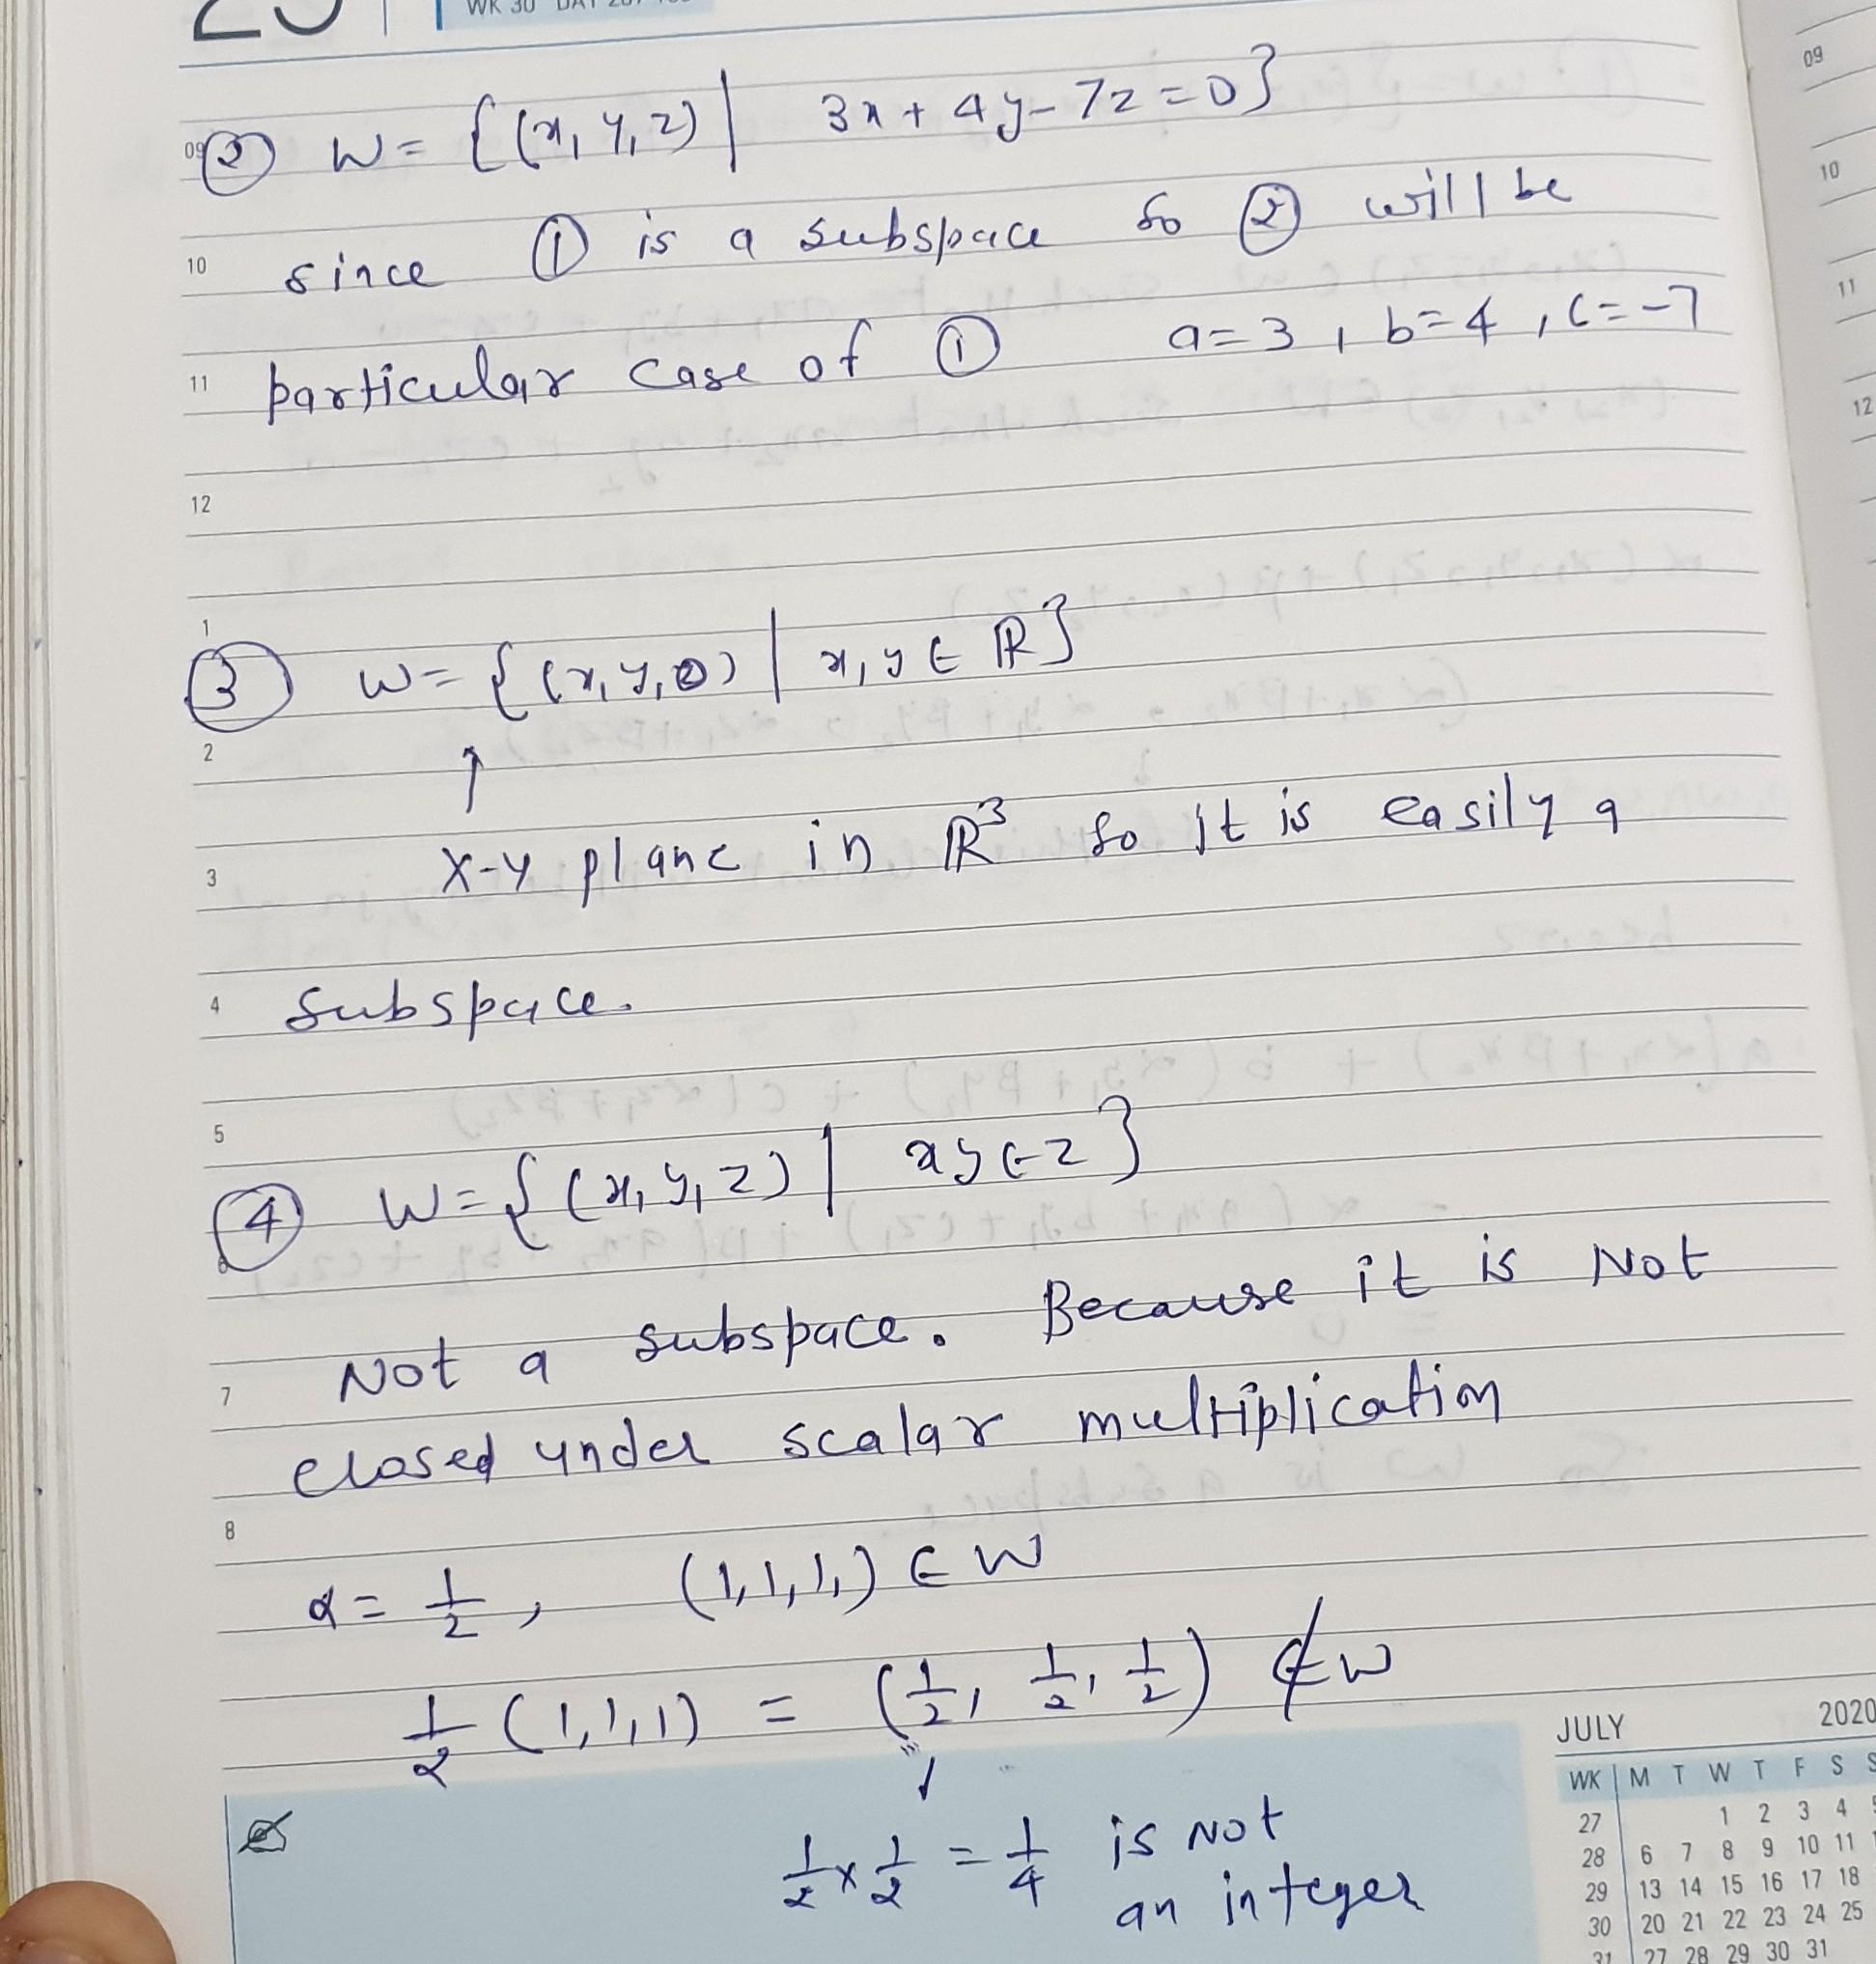 WK 30
② W = {(x, y, z) | 3x + 4y - 7z = 0}
since ① is a subspace so ② will be
particular case of ① a = 3, b = 4, c = -7
③ W = {(x, y, 0) | x, y ∈ ℝ}
↑
X-Y plane in ℝ³ so it is easily a
subspace.
④ W = {(x, y, z) | xy ∈ z}
Not a subspace. Because it is Not
closed under scalar multiplication
α = 1/2, (1, 1, 1,) ∈ W
1/2 (1, 1, 1) = (1/2, 1/2, 1/2) ∉ W
↓
1/2 × 1/2 = 1/4 is Not
an integer
09
10
11
12
1
2
3
4
5
6
7
8
09
10
11
12
JULY 2020
WK M T W T F S S
27 1 2 3 4
28 6 7 8 9 10 11
29 13 14 15 16 17 18
30 20 21 22 23 24 25
31 27 28 29 30 31